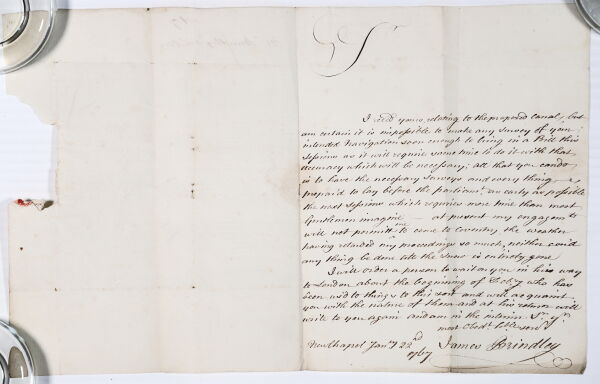 Sr
I recd yours, relating to the proposed Canal, but
am certain it is impossible to make any survey of your
intended Navigation soon enough to bring in a Bill this
Sessions as it will require some time to do it with that
accuracy which will be necessary; all that you can do
is to have the necessary Surveys and every thing
prepair'd to lay before the Parliamt. as early as possible
the next Sessions which requires more time than most
Gentlemen imagine — at present my engagemts
will not permitt me to come to Coventry, the weather
having retarded my proceedings so much, neither could
any thing be done till the Snow is entirely gone
I will order a person to wait on you in his way
to London about the beginning of Feby who has
been us'd to things to this sort and will acquaint
you with the nature of them and at his return will
write to you again and am in the interim Sr. yr.
most Obedt. hble servt
James Brindley
New Chapel Jany 22nd
1767